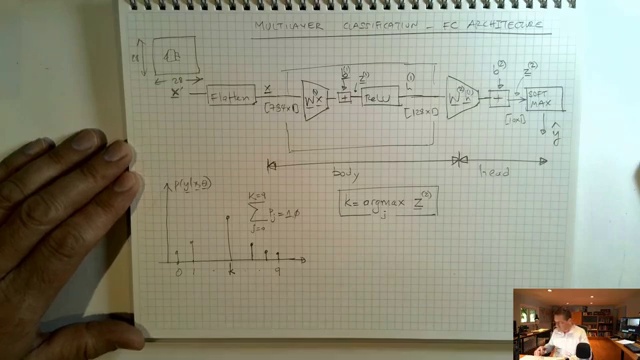 MULTILAYER CLASSIFICATION - FC ARCHITECTURE
28
28
x'
Flatten
x
[784x1]
W(1)x
b(1)
+
z(1)
ReLU
h(1)
[128x1]
W(2)h(1)
b(2)
+
z(2)
[10x1]
SOFT
MAX
ŷ
body
head
p(y|x,θ)
K-1=9
Σ p_j=1.0
j=0
k=argmax z(2)
j
0 1 k 9